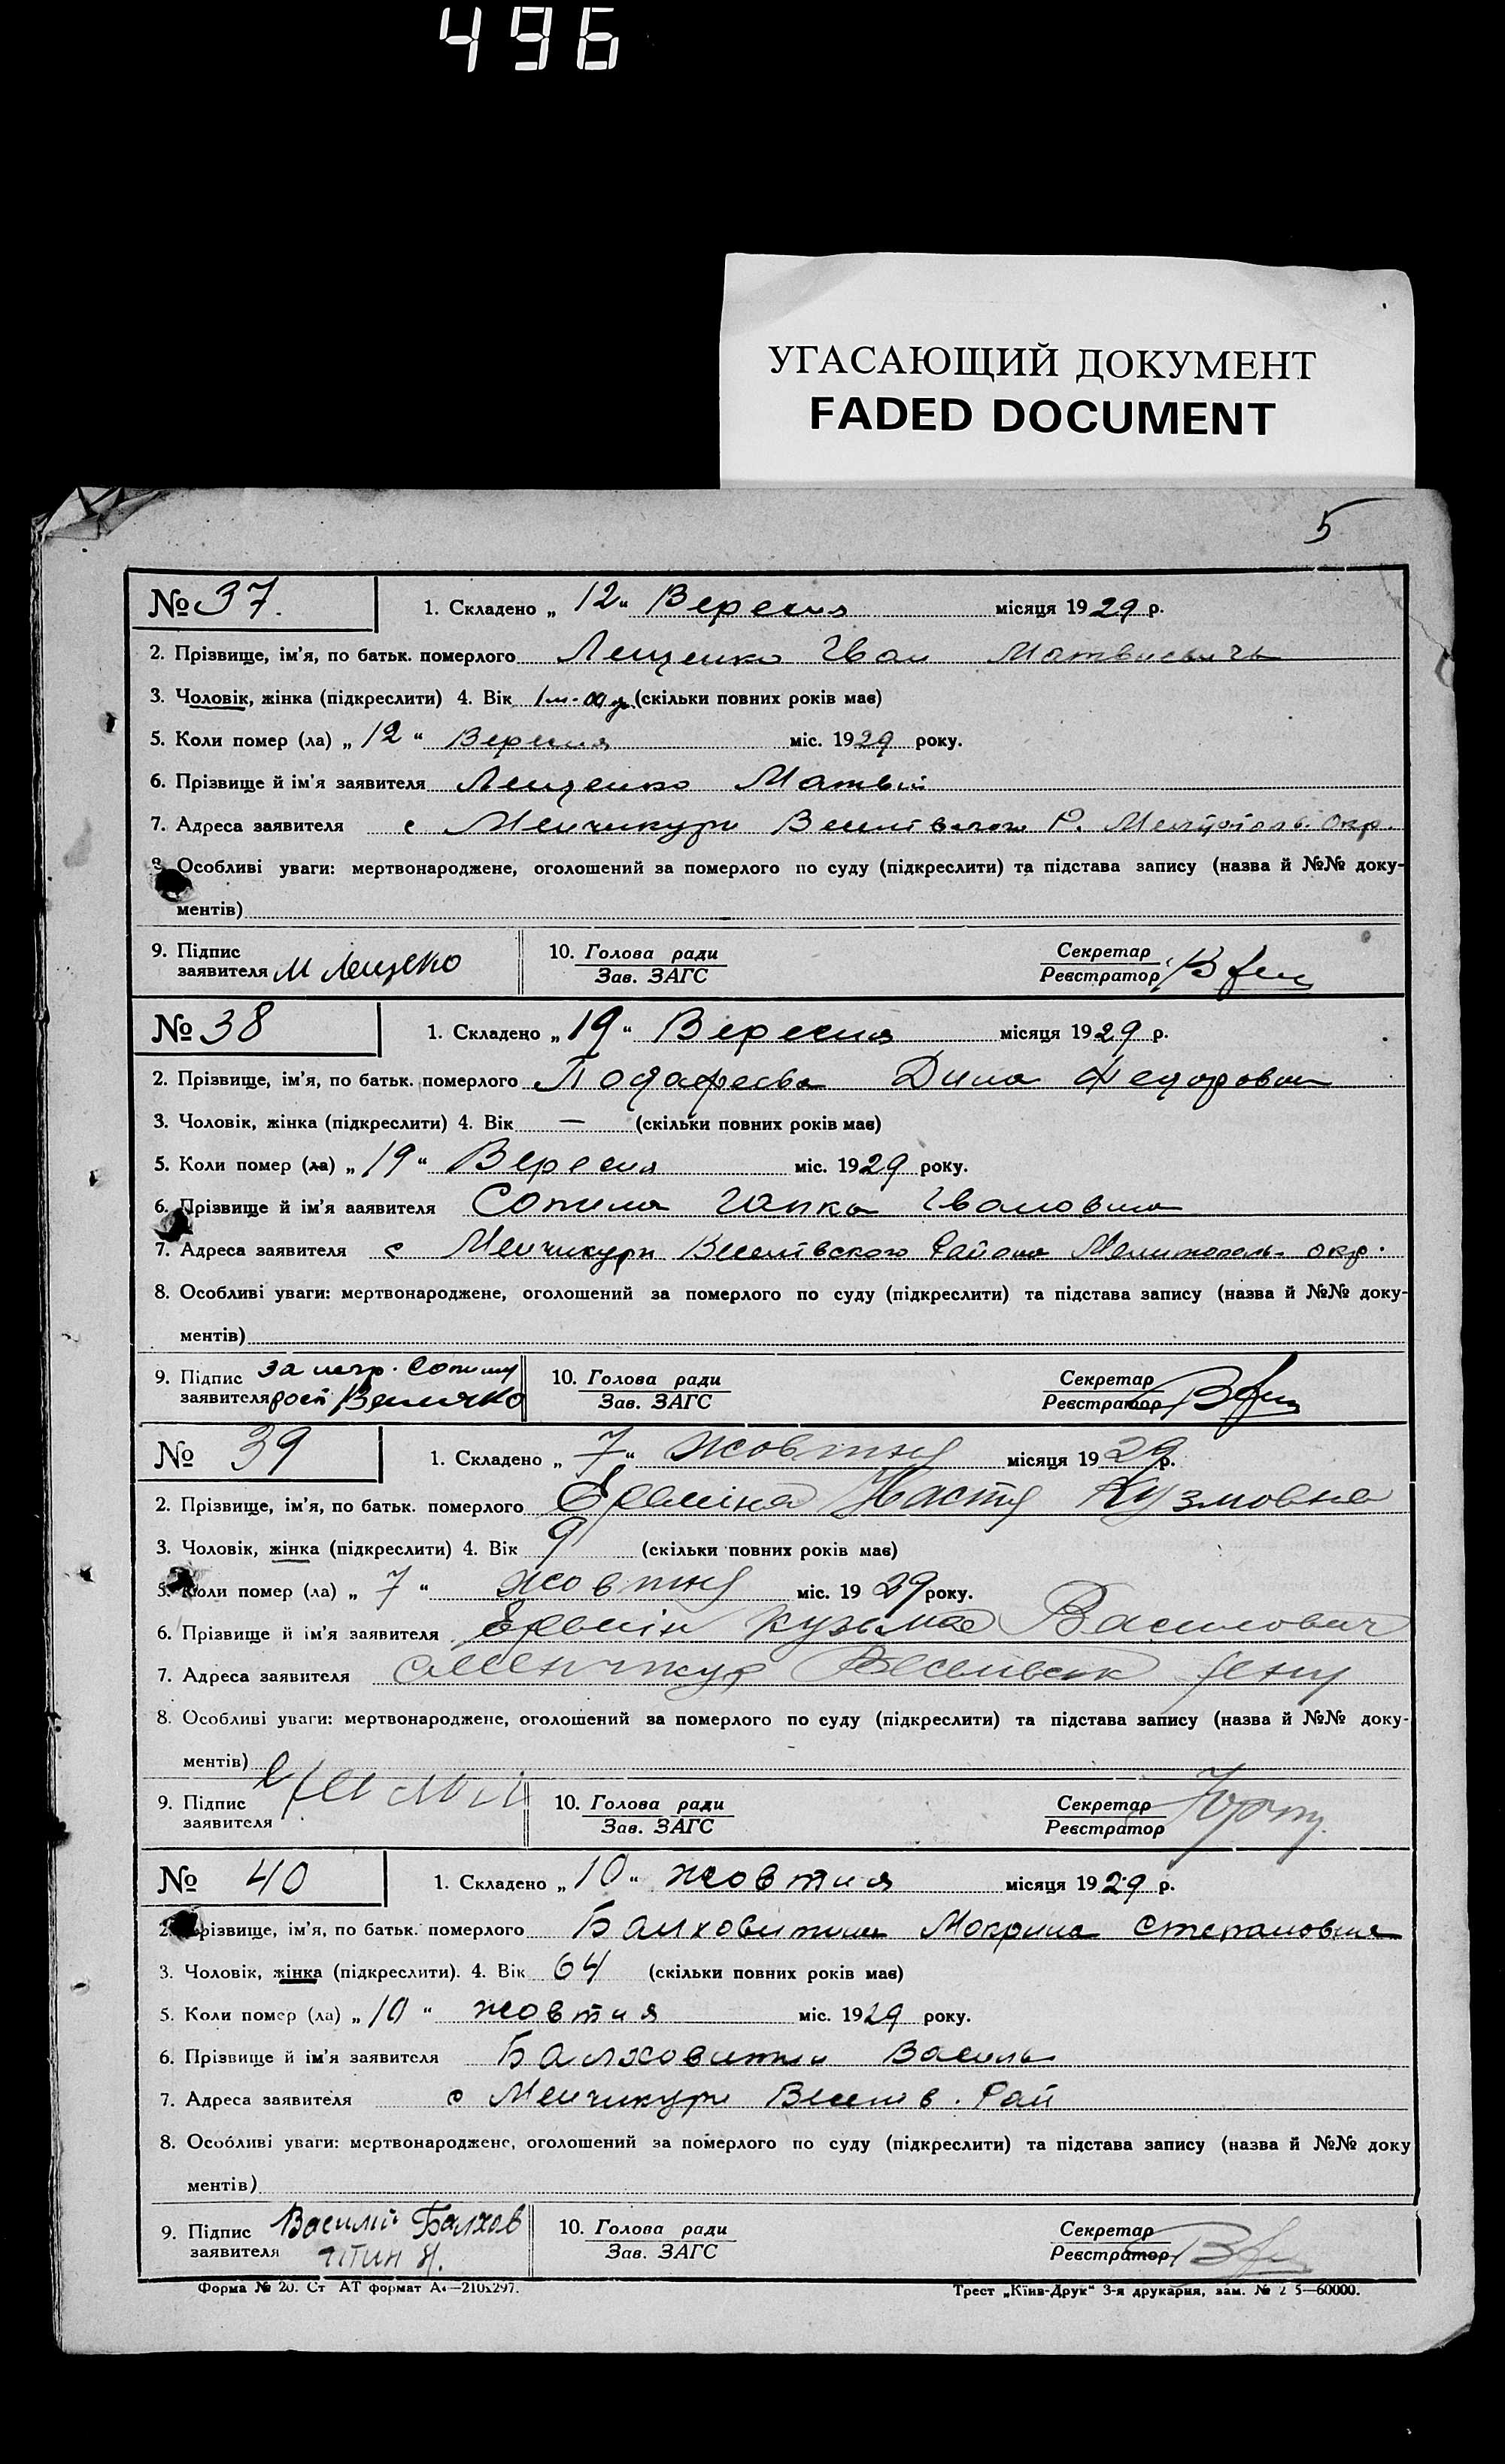 496
УГАСАЮЩИЙ ДОКУМЕНТ
FADED DOCUMENT
5
№ 37. 1. Складено „ 12 “ Вересня місяця 1929 р.
2. Прізвище, ім'я, по батьк. померлого Лещенко Іван Матвиевичь
3. Чоловік, жінка (підкреслити) 4. Вік (скільки повних років має)
5. Коли помер (ла) „ 12 “ Вересня міс. 1929 року.
6. Прізвище й ім'я заявителя Лещенко Матвій
7. Адреса заявителя с Менчикури Р. Окр.
8. Особливі уваги: мертвонароджене, оголошений за померлого по суду (підкреслити) та підстава запису (назва й №№ доку-
ментів)
9. Підпис 10. Голова ради Секретар
заявителя М Лещеко Зав. ЗАГС Реєстратор
№ 38 1. Складено „ 19 “ Вересня місяця 1929 р.
2. Прізвище, ім'я, по батьк. померлого Дина Федоровна
3. Чоловік, жінка (підкреслити) 4. Вік — (скільки повних років має)
5. Коли помер (ла) „ 19 “ Вересня міс. 1929 року.
6. Прізвище й ім'я заявителя Сопина Гапка Івановна
7. Адреса заявителя с Менчикури Веселівского Району Мелитополь. окр.
8. Особливі уваги: мертвонароджене, оголошений за померлого по суду (підкреслити) та підстава запису (назва й №№ доку-
ментів)
9. Підпис за негр. 10. Голова ради Секретар
заявителя Величко Зав. ЗАГС Реєстратор
№ 39 1. Складено „ 7 “ жовтня місяця 1929 р.
2. Прізвище, ім'я, по батьк. померлого Настя Кузмовна
3. Чоловік, жінка (підкреслити) 4. Вік 9 (скільки повних років має)
5. Коли помер (ла) „ 7 “ жовтня міс. 1929 року.
6. Прізвище й ім'я заявителя Кузьма Василович
7. Адреса заявителя с Менчикур Веселівськ
8. Особливі уваги: мертвонароджене, оголошений за померлого по суду (підкреслити) та підстава запису (назва й №№ доку-
ментів)
9. Підпис 10. Голова ради Секретар
заявителя Зав. ЗАГС Реєстратор
№ 40 1. Складено „ 10 “ жовтня місяця 1929 р.
2. Прізвище, ім'я, по батьк. померлого Балховитина Мокрина Степановна
3. Чоловік, жінка (підкреслити). 4. Вік 64 (скільки повних років має)
5. Коли помер (ла) „ 10 “ жовтня міс. 1929 року.
6. Прізвище й ім'я заявителя Балховитин Василь
7. Адреса заявителя с Менчикури Веселів. Рай
8. Особливі уваги: мертвонароджене, оголошений за померлого по суду (підкреслити) та підстава запису (назва й №№ доку
ментів)
9. Підпис Василий Балхов 10. Голова ради Секретар
заявителя итин Зав. ЗАГС Реєстратор
Форма № 20. Ст АТ формат А4—210х297. Трест „Київ-Друк“ 3-я друкарня, зам. № 2 5—60000.